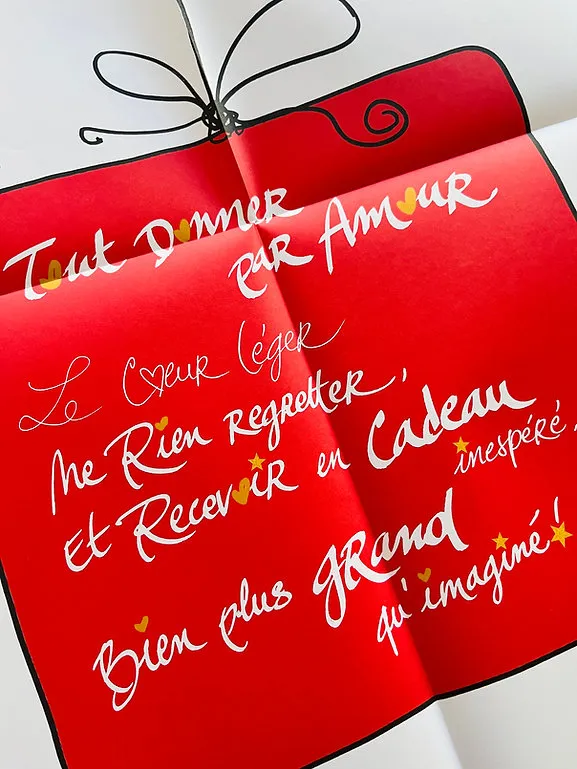 Tout Donner
par Amour
Le Cœur léger
Ne Rien regretter,
Et Recevoir en Cadeau
inespéré,
Bien plus grand
qu'imaginé!